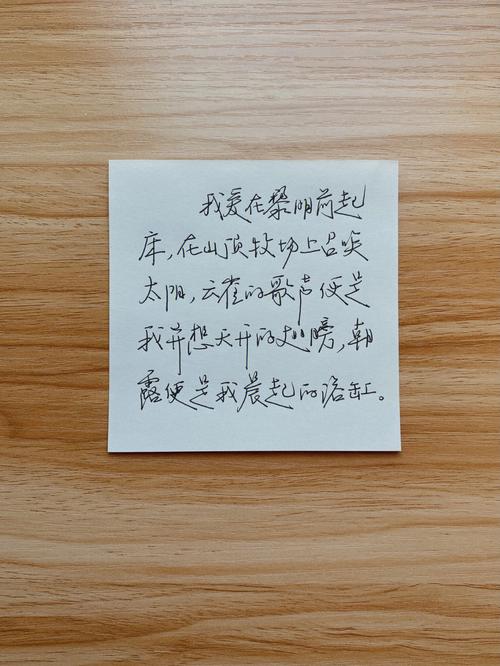 我爱在黎明前起
床，在山顶牧场上召唤
太阳，云雀的歌声便是
我异想天开的翅膀，朝
露便是我晨起的浴缸。